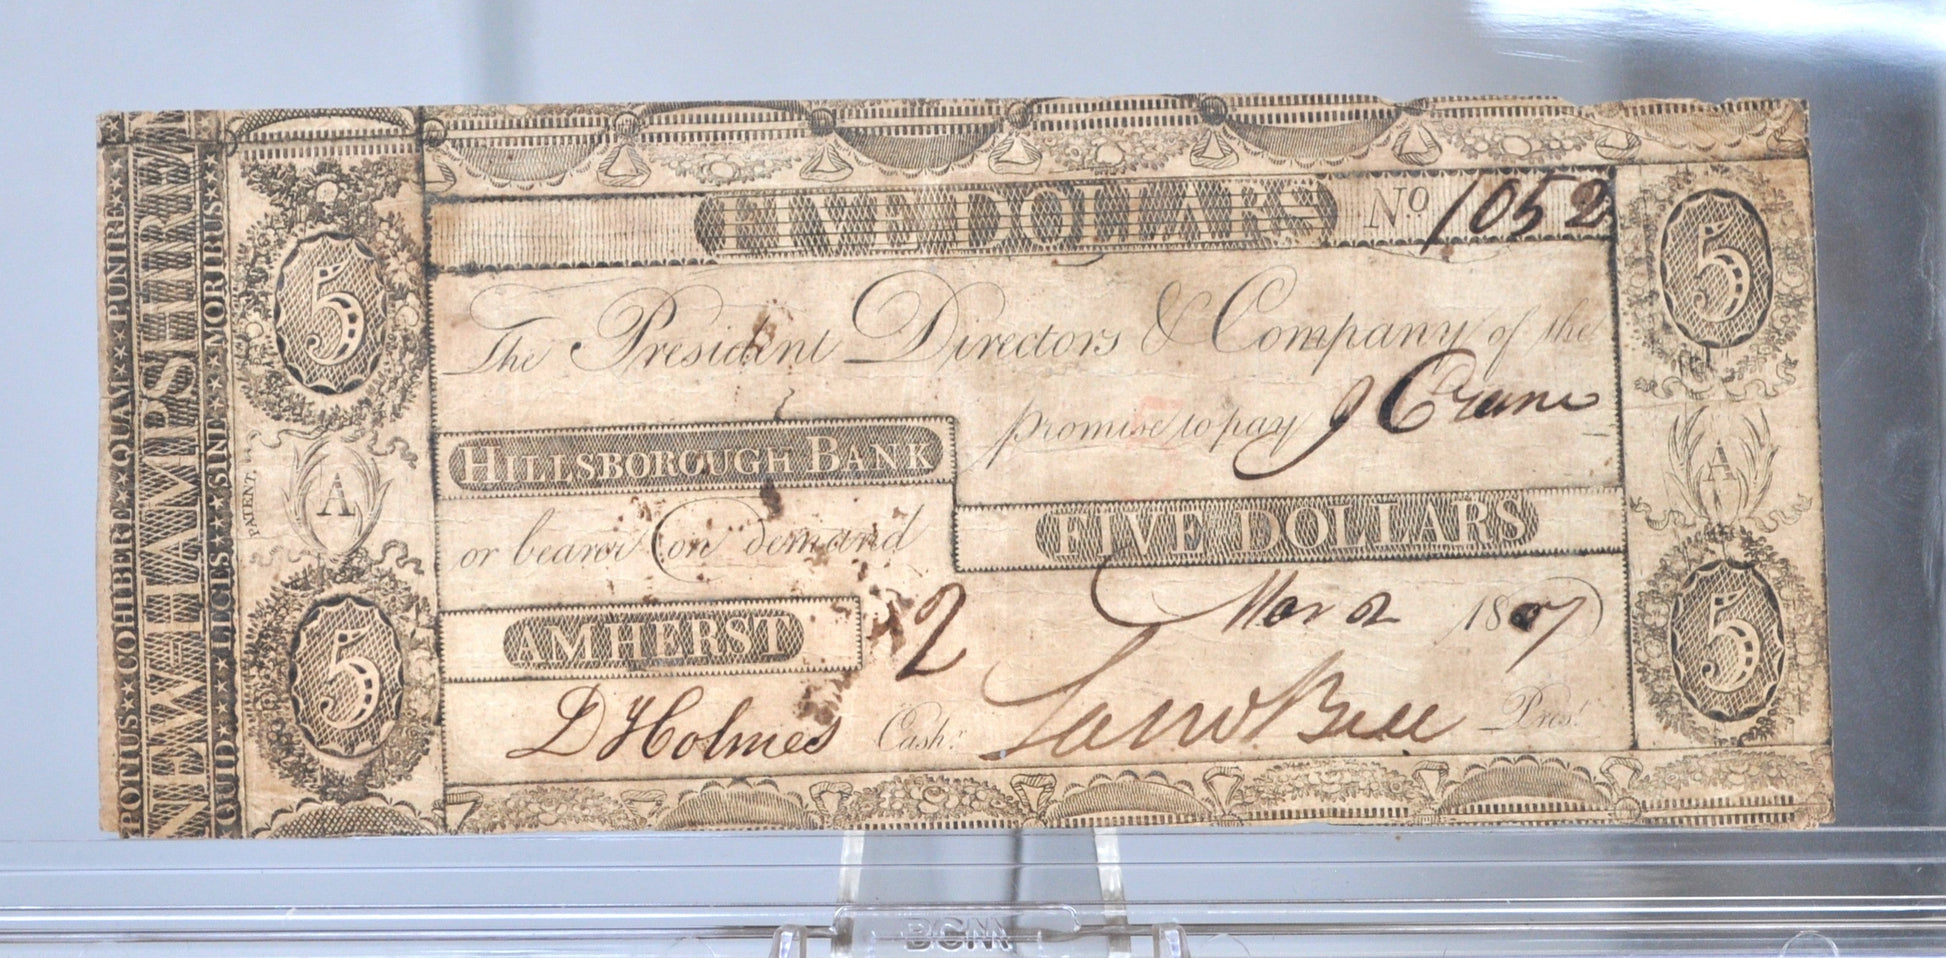 POTIUS ★★ COHIBERE ★★ QUAM ★★ PUNIRE ★★
NEW-HAMPSHIRE
OUD ★★★★ ILLGIES ★★★ SINE ★★ MORIBUS ★★
PATENT.
5
5
A
A
5
5
FIVE DOLLARS No. 1052
The President Directors & Company of the
HILLSBOROUGH BANK promise to pay J Crane
or bearer on demand FIVE DOLLARS
AMHERST 2 Mar 2 1807
D Holmes Cashr. Saml Bell Prest.
BCW